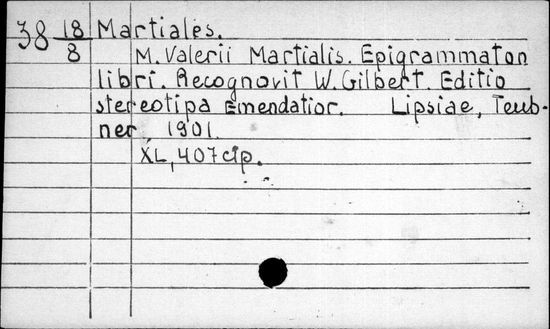 38 18 Martiales.
8 M. Valerii Martialis. Epigrammaton
libri. Recognovit W. Gilbert. Editio
stereotipa Emendatior. Lipsiae, Teub-
ner, 1901.
XL, 407 стр.